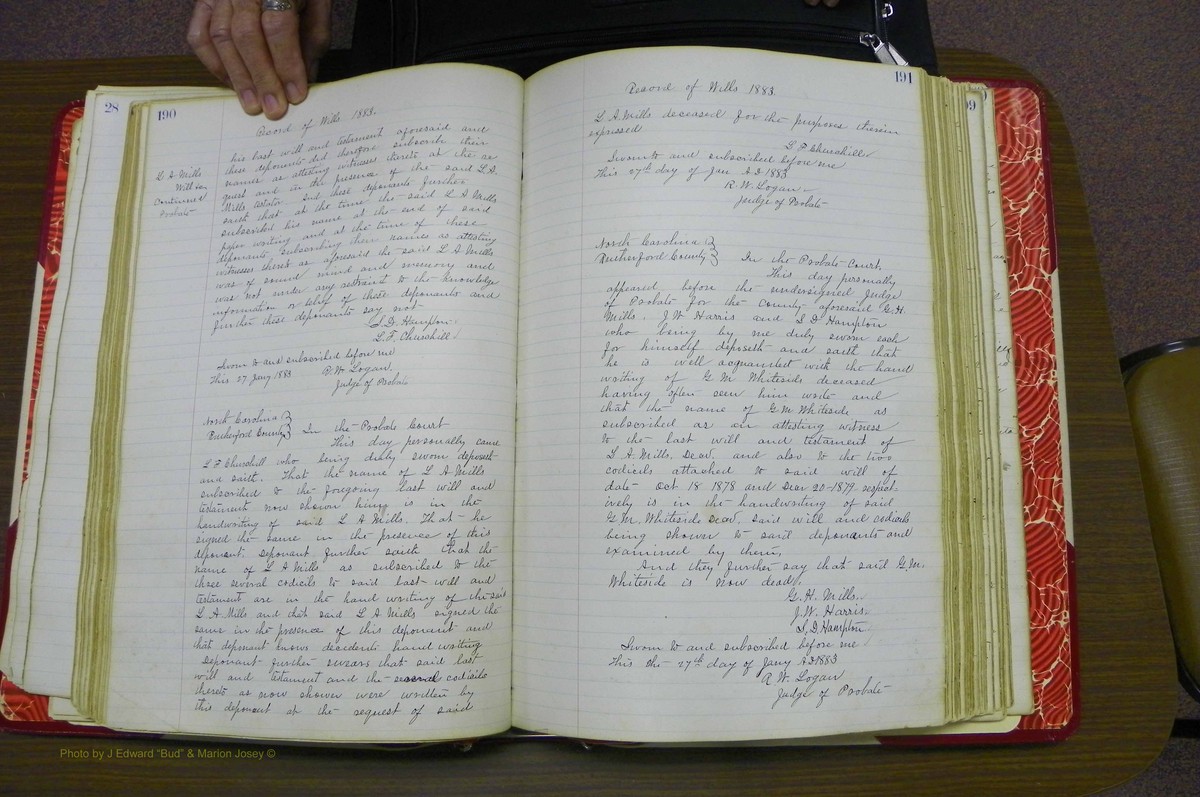 28
190
Record of Wills 1883.
L A Mills
Will con
continued
Probate
his last will and testament aforesaid and
these deponants did therefore subscribe their
names as attesting witnesses thereto at the re
quest and in the presence of the said L.A.
Mills testator And these deponants further
saith that at the time the said L A Mills
subscribed his name at the end of said
paper writing and at the time of these
deponants subscribing their names as attesting
witnesses thereto as aforesaid the said L A Mills
was of sound mind and memory and
was not under any restraint to the knowledge
information or belief of these deponants and
further these deponants say not
S. D. Hampton
L. F. Churchill
Sworn to and subscribed before me
This 27 Jany 1883 R. W. Logan
Judge of Probate
North Carolina
Rutherford County In the Probate Court
This day personally came
L F Churchill who being duly sworn deposeth
and saith. That the name of L A Mills
subscribed to the foregoing last will and
testament now shown him is in the
handwriting of said L A Mills. That he
signed the same in the presence of this
deponant. deponant further saith that the
name of L A Mills as subscribed to the
three several codicils to said last will and
testament are in the hand writing of the said
L A Mills and that said L A Mills signed the
same in the presence of this deponant and
that deponant knows decedents hand writing
Deponant further swears that said last
will and testament and the several codicils
thereto as now shown were written by
this deponent at the request of said
191
Record of Wills 1883
L A Mills deceased for the purposes therein
expressed
L F Churchill
Sworn to and subscribed before me
This 27th day of Jan A D 1883
R. W. Logan
Judge of Probate
North Carolina
Rutherford County In the Probate Court,
This day personally
appeared before the undersigned Judge
of Probate for the County aforesaid G.H.
Mills. J W Harris and S D Hampton
who being by me duly sworn each
for himself deposeth and saith that
he is well acquainted with the hand
writing of G M Whiteside deceased
having often seen him write and
that the name of G M Whiteside as
subscribed as an attesting witness
to the last will and testament of
L A Mills. Decd. and also to the two
codicils attached to said will of
date Oct 18 1878 and Decr 20-1879. respect
ively is in the handwriting of said
G. M. Whiteside decd. said will and codicils
being shown to said deponants and
examined by them,
And they further say that said G. M.
Whiteside is now dead.
G. H. Mills.
J. W. Harris
S. D. Hampton
Sworn to and subscribed before me
This the 27th day of Jany A D 1883
R W. Logan
Judge of Probate
99
Photo by J Edward "Bud" & Marion Josey ©